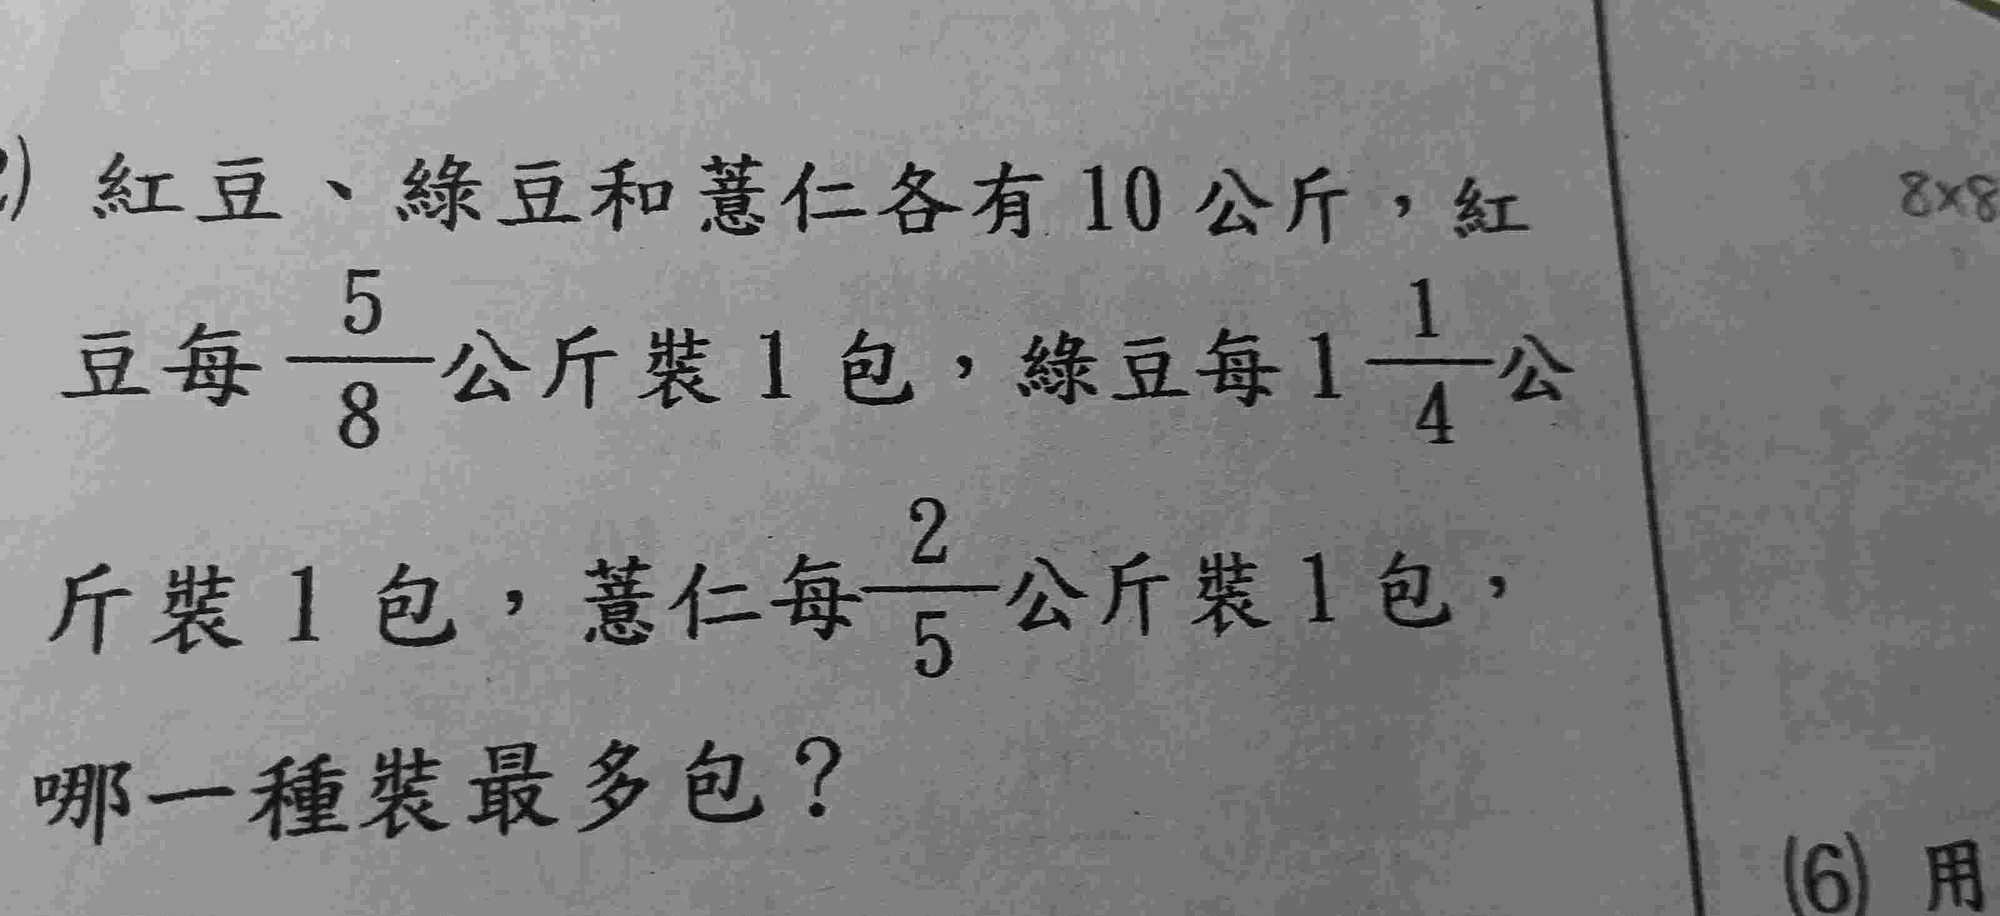 ) 紅豆、綠豆和薏仁各有 10 公斤，紅
豆每 5/8 公斤裝 1 包，綠豆每 1 1/4 公
斤裝 1 包，薏仁每 2/5 公斤裝 1 包，
哪一種裝最多包？
8×8
(6) 用